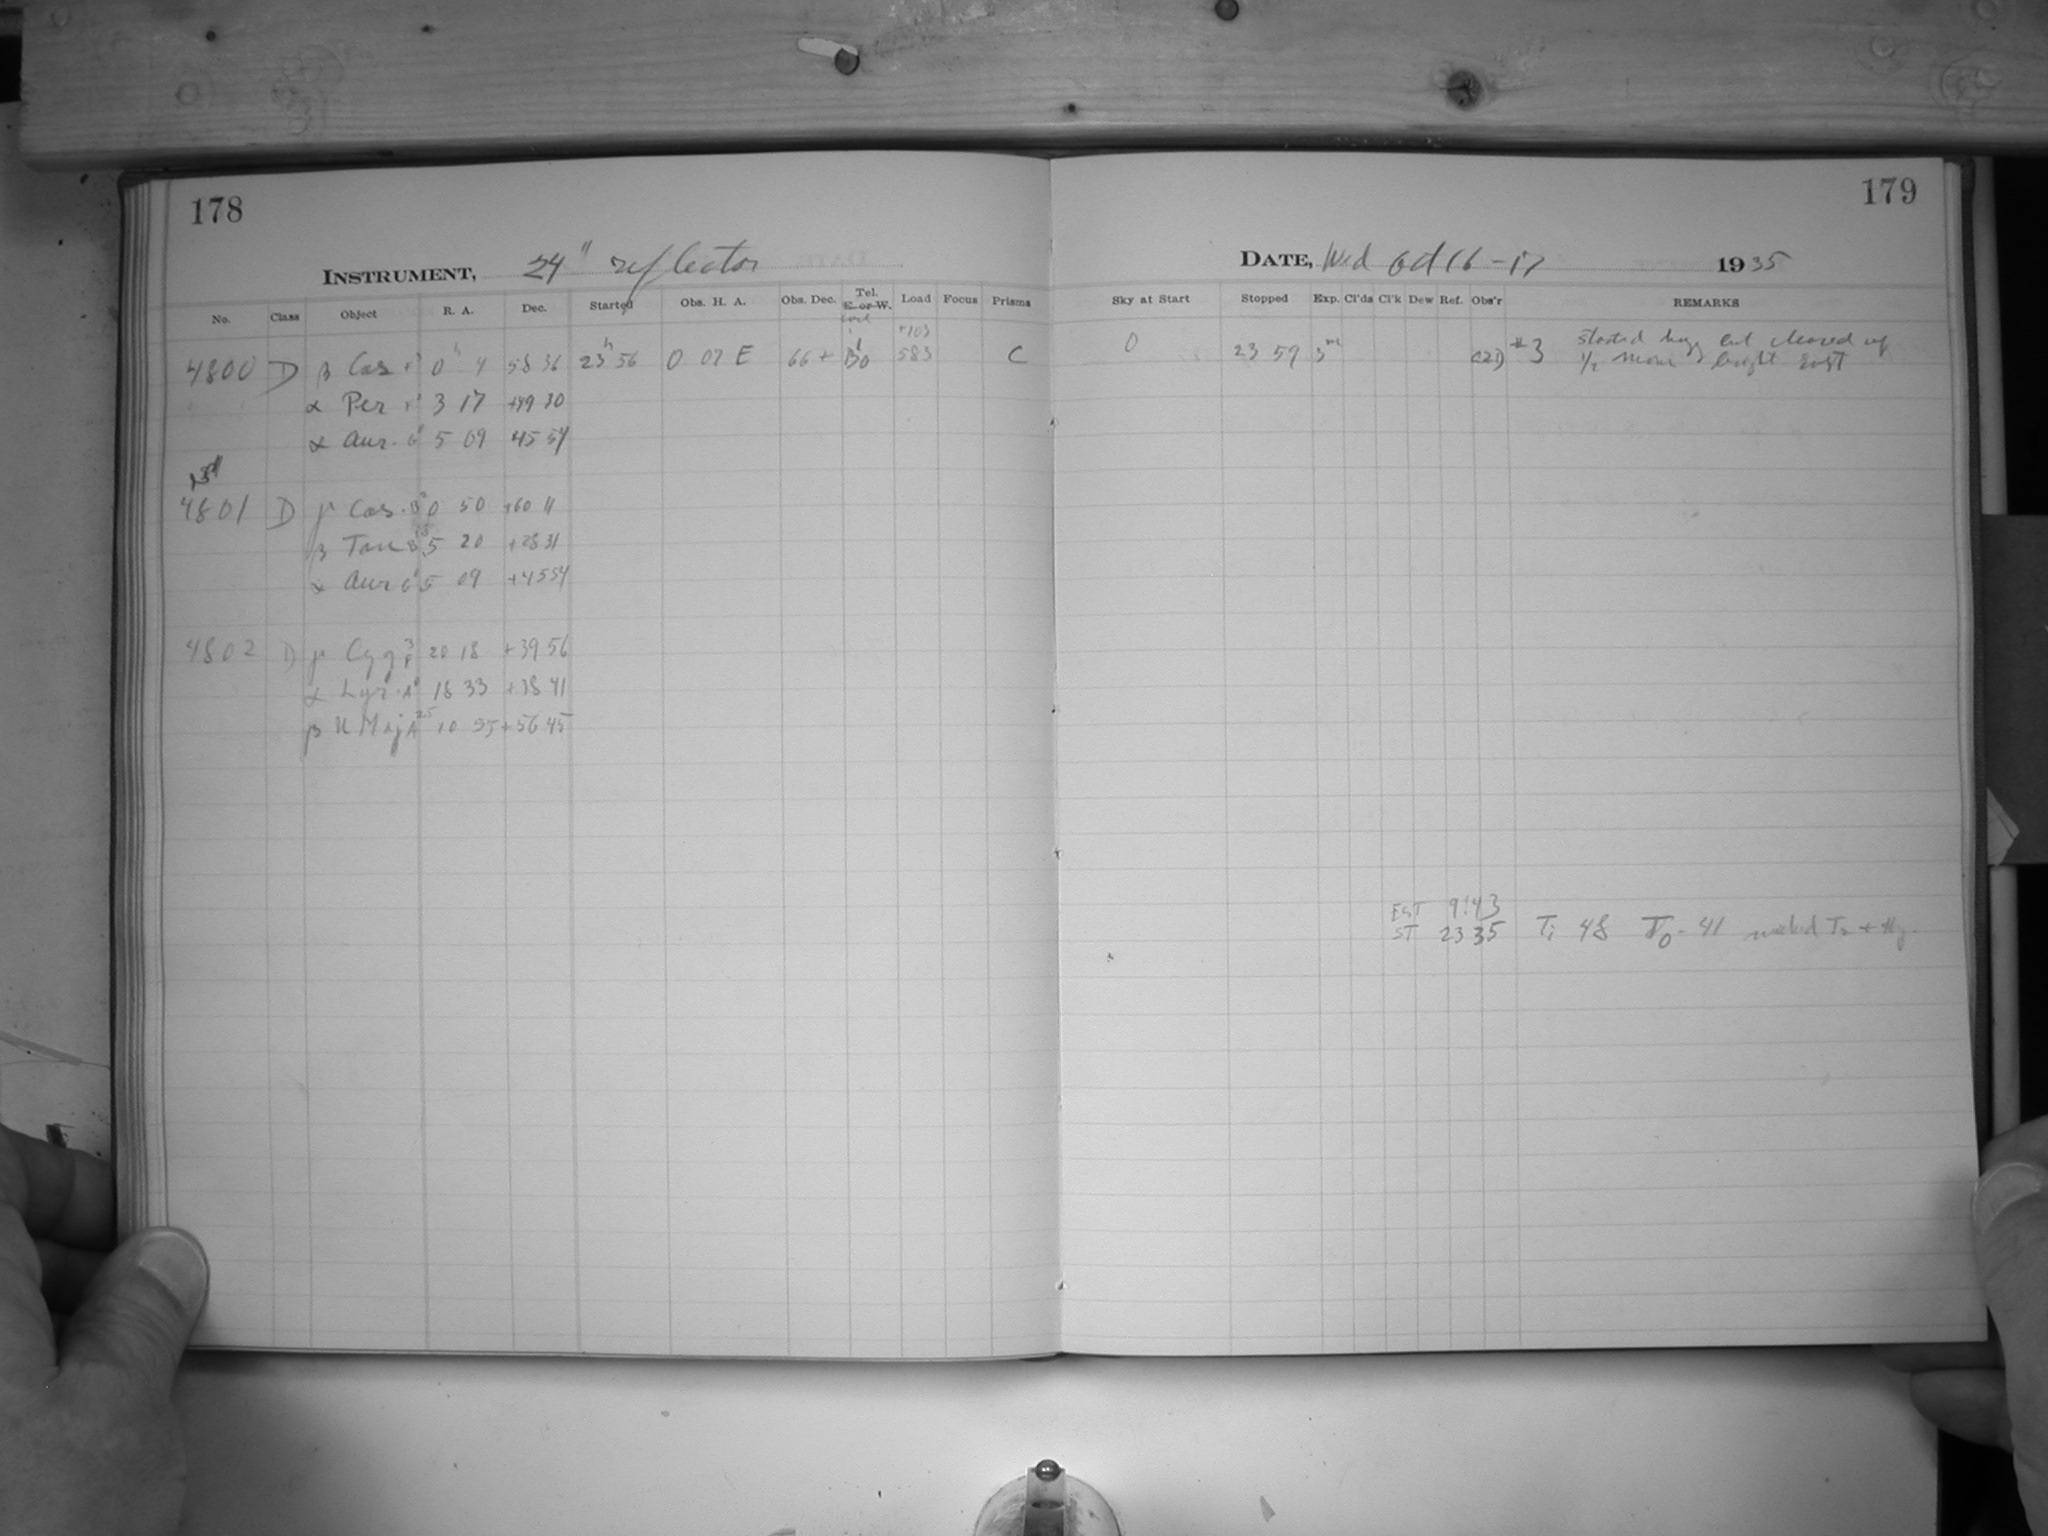 178
INSTRUMENT, 24" reflector
No. Class Object R. A. Dec. Started Obs. H. A. Obs. Dec. Tel. E. or W. Load Focus Prisms
+103
4800 D β Cas 0h 4 58 36 23h 56 0 07 E 66+ 583 C
α Per 3 17 +49 30
α Aur. G0 5 09 45 54
4801 D γ Cas. B0 0 50 +60 11
β Tau B8 5 20 +28 31
α Aur G0 5 09 +45 54
4802 D γ Cyg F8 20 18 +39 56
α Lyr. A0 18 33 +38 41
β U Maj A 10 55 +56 45
179
DATE, Wed Oct 16-17 1935
Sky at Start Stopped Exp. Cl'ds Cl'k Dew Ref. Obs'r REMARKS
0 23 59 3m #3 started hazy but cleared up
1/2 moon bright East
EST 9:43
ST 23 35 Ti 48 To - 41